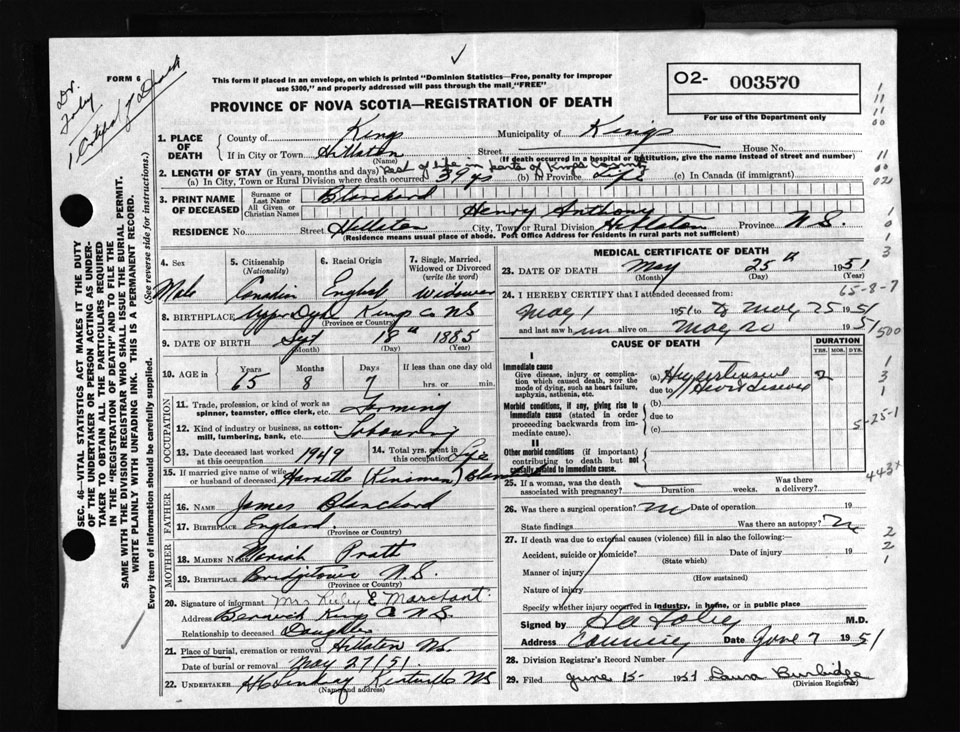 FORM 6
Dr.
Foley
This form if placed in an envelope, on which is printed "Dominion Statistics—Free, penalty for improper
use $300," and properly addressed will pass through the mail, "FREE"
PROVINCE OF NOVA SCOTIA—REGISTRATION OF DEATH
O2- 003570
For use of the Department only
SEC. 46—VITAL STATISTICS ACT MAKES IT THE DUTY
OF THE UNDERTAKER OR PERSON ACTING AS UNDER-
TAKER TO OBTAIN ALL THE PARTICULARS REQUIRED
IN THE "REGISTRATION OF DEATH" AND TO FILE THE
SAME WITH THE DIVISION REGISTRAR WHO SHALL ISSUE THE BURIAL PERMIT.
WRITE PLAINLY WITH UNFADING INK. THIS IS A PERMANENT RECORD.
Every item of information should be carefully supplied. (See reverse side for instructions.)
1. PLACE OF DEATH
County of Kings Municipality of Kings
If in City or Town Hillaton Street House No.
(Name) (If death occurred in a hospital or institution, give the name instead of street and number)
2. LENGTH OF STAY (in years, months and days) Rest of life in parts of Kings County
(a) In City, Town or Rural Division where death occurred 39 yrs (b) In Province Life (c) In Canada (if immigrant)
3. PRINT NAME OF DECEASED
Surname or Last Name Blanchard
All Given or Christian Names Henry Anthony
RESIDENCE No. Street Hillaton City, Town or Rural Division Hillaton Province N.S.
(Residence means usual place of abode. Post Office Address for residents in rural parts not sufficient)
4. Sex Male
5. Citizenship (Nationality) Canadian
6. Racial Origin English
7. Single, Married, Widowed or Divorced (write the word) Widower
8. BIRTHPLACE Upper Dyke Kings Co NS
(Province or Country)
9. DATE OF BIRTH Sept 18th 1885
(Month) (Day) (Year)
10. AGE in Years 65 Months 8 Days 7 If less than one day old
hrs. or min.
OCCUPATION
11. Trade, profession, or kind of work as
spinner, teamster, office clerk, etc. Farming
12. Kind of industry or business, as cotton-
mill, lumbering, bank, etc. Labouring
13. Date deceased last worked at this occupation 1949
14. Total yrs. spent in this occupation Life
15. If married give name of wife
or husband of deceased Harriette (Kinsman) Blanchard
FATHER
16. Name James Blanchard
17. Birthplace England
(Province or Country)
MOTHER
18. Maiden Name Mariah Pratt
19. Birthplace Bridgetown N.S.
(Province or Country)
20. Signature of informant Mrs Ruby E Marchant
Address Berwick Kings Co N.S.
Relationship to deceased Daughter
21. Place of burial, cremation or removal Hillaton NS.
Date of burial or removal May 27/51
22. UNDERTAKER H Lindsay Kentville NS
(Name and address)
MEDICAL CERTIFICATE OF DEATH
23. DATE OF DEATH May 25th 1951
(Month) (Day)
65-8-7
24. I HEREBY CERTIFY that I attended deceased from:
May 1 1951 to May 25 1951
and last saw him alive on May 20 1951
CAUSE OF DEATH
DURATION
YRS. MOS. DYS.
I
Immediate cause
Give disease, injury or complica-
tion which caused death, NOT the
mode of dying, such as heart failure,
asphyxia, asthenia, etc.
(a) Hypertensive 2
due to Heart disease
Morbid conditions, if any, giving rise to
immediate cause (stated in order
proceeding backwards from im-
mediate cause).
(b)
due to
(c)
5-25-1
II
Other morbid conditions (if important)
contributing to death but not
causally related to immediate cause.
443x
25. If a woman, was the death
associated with pregnancy? Duration weeks. Was there
a delivery?
26. Was there a surgical operation? No Date of operation 19
State findings Was there an autopsy? No
27. If death was due to external causes (violence) fill in also the following:—
Accident, suicide or homicide? Date of injury 19
(State which)
Manner of injury
(How sustained)
Nature of injury
Specify whether injury occurred in industry, in home, or in public place
Signed by M.D.
Address Canning Date June 7 1951
28. Division Registrar's Record Number
29. Filed June 15- 1951 Laura Burbidge
(Division Registrar)